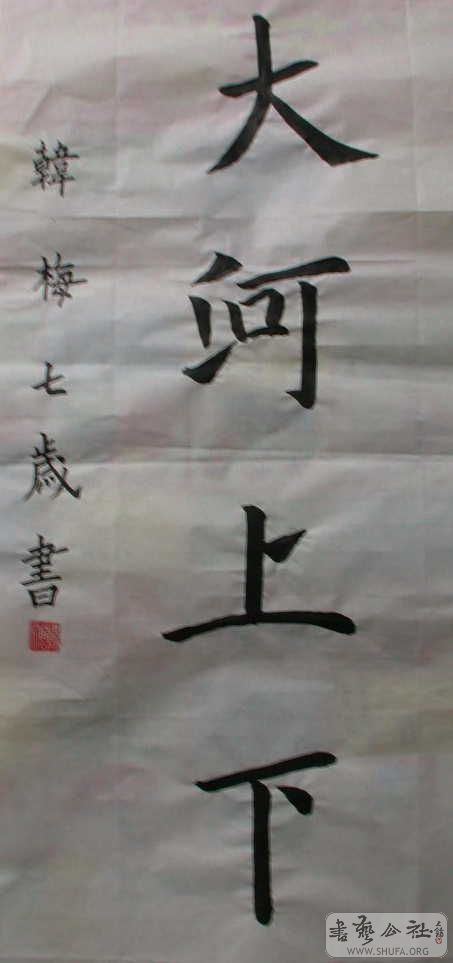 大河上下
韓梅七歲書
書藝公社
WWW.SHUFA.ORG